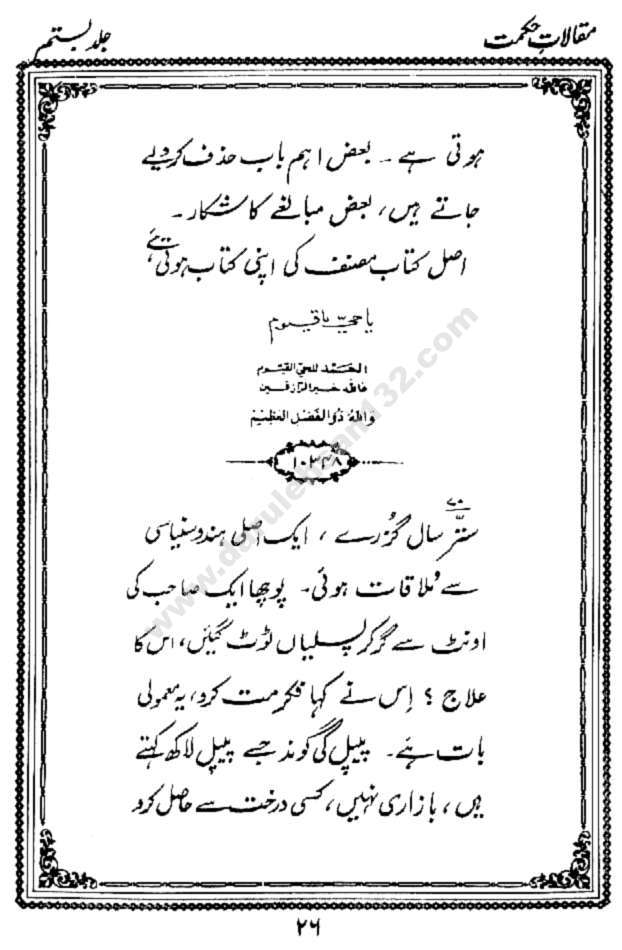 مقالاتِ حکمت
جلد بستم
ہوتی ہے ۔ بعض اہم باب حذف کر دیے
جاتے ہیں، بعض مبالغے کا شکار ۔
اصل کتاب مصنف کی اپنی کتاب ہوتی ہے،
یا حیّ یا قیوم
الحمد للحی القیوم
فاللہ خیر الرازقین
واللہ ذو الفضل العظیم
۱۰۳۴۸
۷۰
ستّر سال گزرے ، ایک اصلی ہندو سنیاسی
سے مُلاقات ہوئی ۔ پوچھا ایک صاحب کی
اونٹ سے گر کر پسلیاں ٹوٹ گئیں، اس کا
علاج ؟ اِس نے کہا فکر مت کرو، یہ معمولی
بات ہے ۔ پیپل کی گوند جسے پیپل لاکھ کہتے
ہیں ، بازاری نہیں، کسی درخت سے حاصل کرو
۲۶
www.darulehsan132.com